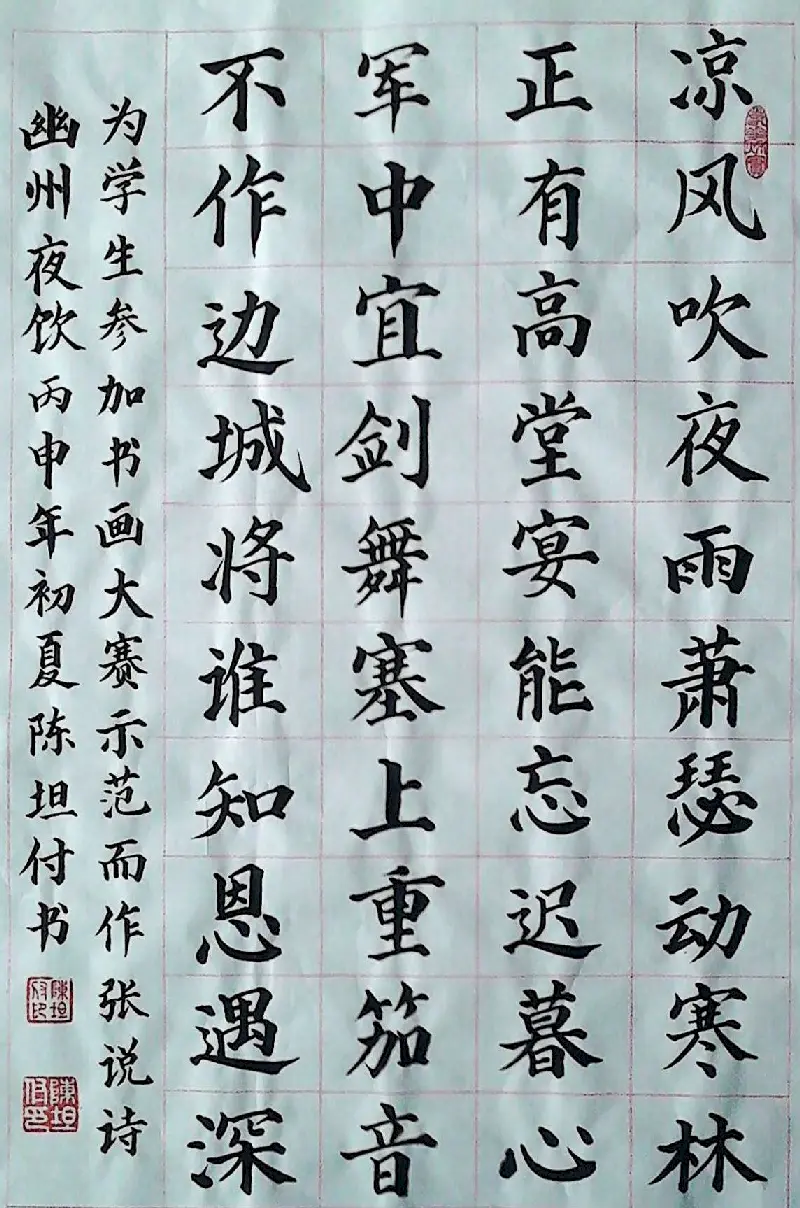 凉风吹夜雨萧瑟动寒林
正有高堂宴能忘迟暮心
军中宜剑舞塞上重笳音
不作边城将谁知恩遇深
为学生参加书画大赛示范而作张说诗
幽州夜饮丙申年初夏陈坦付书
陳坦付印
陳坦付印